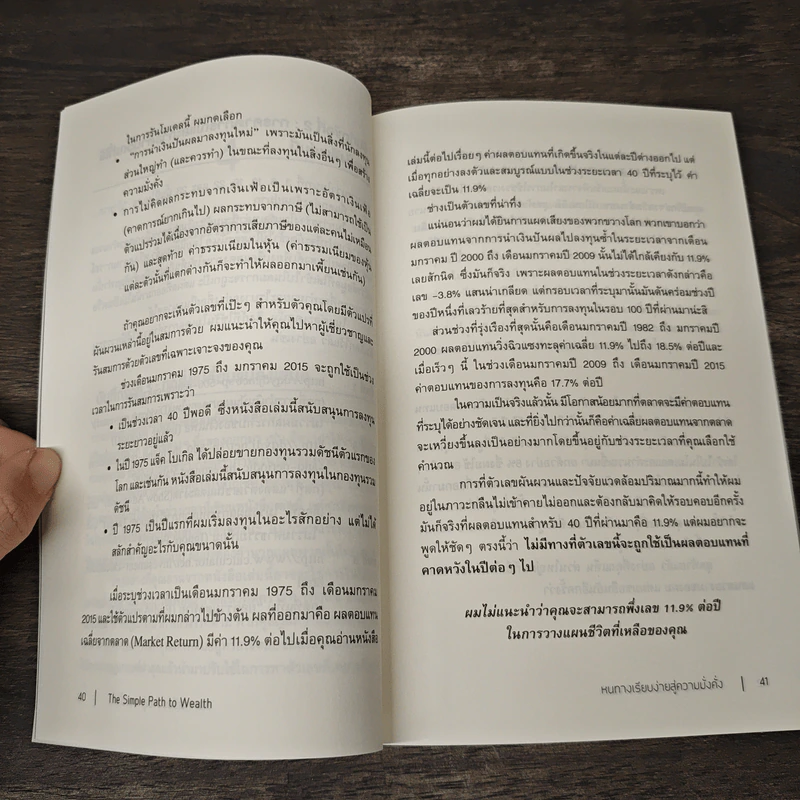 ในการรันโมเดลนี้ ผมกดเลือก
• “การนำเงินปันผลมาลงทุนใหม่” เพราะมันเป็นสิ่งที่นักลงทุน
ส่วนใหญ่ทำ (และควรทำ) ในขณะที่ลงทุนในสิ่งอื่นๆ เพื่อสร้าง
ความมั่งคั่ง
• การไม่คิดผลกระทบจากเงินเฟ้อเป็นเพราะอัตราเงินเฟ้อ
(คาดการณ์ยากเกินไป) ผลกระทบจากภาษี (ไม่สามารถใช้เป็น
ตัวแปรร่วมได้เนื่องจากอัตราการเสียภาษีของแต่ละคนไม่เหมือน
กัน) และสุดท้าย ค่าธรรมเนียมในหุ้น (ค่าธรรมเนียมของหุ้น
แต่ละตัวนั้นที่แตกต่างกันก็จะทำให้ผลออกมาเพี้ยนเช่นกัน)
ถ้าคุณอยากจะเห็นตัวเลขที่เป๊ะๆ สำหรับตัวคุณโดยมีตัวแปรที่
ผันผวนเหล่านี้อยู่ในสมการด้วย ผมแนะนำให้คุณไปหาผู้เชี่ยวชาญและ
รันสมการด้วยตัวเลขที่เฉพาะเจาะจงของคุณ
ช่วงเดือนมกราคม 1975 ถึง มกราคม 2015 จะถูกใช้เป็นช่วง
เวลาในการรันสมการเพราะว่า
• เป็นช่วงเวลา 40 ปีพอดี ซึ่งหนังสือเล่มนี้สนับสนุนการลงทุน
ระยะยาวอยู่แล้ว
• ในปี 1975 แจ็ค โบเกิล ได้ปล่อยขายกองทุนรวมดัชนีตัวแรกของ
โลก และเช่นกัน หนังสือเล่มนี้สนับสนุนการลงทุนในกองทุนรวม
ดัชนี
• ปี 1975 เป็นปีแรกที่ผมเริ่มลงทุนในอะไรสักอย่าง แต่ไม่ได้
สลักสำคัญอะไรกับคุณขนาดนั้น
เมื่อระบุช่วงเวลาเป็นเดือนมกราคม 1975 ถึง เดือนมกราคม
2015 และใช้ตัวแปรตามที่ผมกล่าวไปข้างต้น ผลที่ออกมาคือ ผลตอบแทน
เฉลี่ยจากตลาด (Market Return) มีค่า 11.9% ต่อไปเมื่อคุณอ่านหนังสือ
40 | The Simple Path to Wealth
เล่มนี้ต่อไปเรื่อยๆ ค่าผลตอบแทนที่เกิดขึ้นจริงในแต่ละปีต่างออกไป แต่
เมื่อทุกอย่างลงตัวและสมบูรณ์แบบในช่วงระยะเวลา 40 ปีที่ระบุไว้ ค่า
เฉลี่ยจะเป็น 11.9%
ช่างเป็นตัวเลขที่น่าทึ่ง
แน่นอนว่าผมได้ยินการแผดเสียงของพวกขวางโลก พวกเขาบอกว่า
ผลตอบแทนจากการนำเงินปันผลไปลงทุนซ้ำในระยะเวลาจากเดือน
มกราคม ปี 2000 ถึง เดือนมกราคมปี 2009 นั้นไม่ได้ใกล้เคียงกับ 11.9%
เลยสักนิด ซึ่งมันก็จริง เพราะผลตอบแทนในช่วงระยะเวลาดังกล่าวคือ
เลข -3.8% แสนน่าเกลียด แต่กรอบเวลาที่ระบุมานั้นมันดันคร่อมช่วงปี
ของปีหนึ่งที่เลวร้ายที่สุดสำหรับการลงทุนในรอบ 100 ปีที่ผ่านมาน่ะสิ
ส่วนช่วงที่รุ่งเรืองที่สุดนั้นคือเดือนมกราคมปี 1982 ถึง มกราคมปี
2000 ผลตอบแทนวิ่งฉิวแซงทะลุค่าเฉลี่ย 11.9% ไปถึง 18.5% ต่อปีและ
เมื่อเร็วๆ นี้ ในช่วงเดือนมกราคมปี 2009 ถึง เดือนมกราคมปี 2015
ค่าตอบแทนของการลงทุนคือ 17.7% ต่อปี
ในความเป็นจริงแล้วนั้น มีโอกาสน้อยมากที่ตลาดจะมีค่าตอบแทน
ที่ระบุได้อย่างชัดเจน และที่ยิ่งไปกว่านั้นก็คือค่าเฉลี่ยผลตอบแทนจากตลาด
จะเหวี่ยงขึ้นลงเป็นอย่างมากโดยขึ้นอยู่กับช่วงระยะเวลาที่คุณเลือกใช้
คำนวณ
การที่ตัวเลขผันผวนและปัจจัยแวดล้อมปริมาณมากนี้ทำให้ผม
อยู่ในภาวะกลืนไม่เข้าคายไม่ออกและต้องกลับมาคิดให้รอบคอบอีกครั้ง
มันก็จริงที่ผลตอบแทนสำหรับ 40 ปีที่ผ่านมาคือ 11.9% แต่ผมอยากจะ
พูดให้ชัดๆ ตรงนี้ว่า ไม่มีทางที่ตัวเลขนี้จะถูกใช้เป็นผลตอบแทนที่
คาดหวังในปีต่อๆ ไป
ผมไม่แนะนำว่าคุณจะสามารถพึ่งเลข 11.9% ต่อปี
ในการวางแผนชีวิตที่เหลือของคุณ
หนทางเรียบง่ายสู่ความมั่งคั่ง | 41